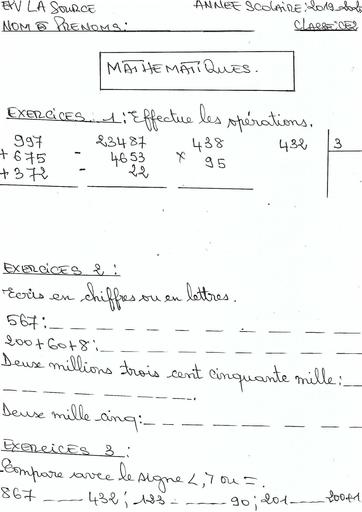 EPV LA SOURCE ANNEE SCOLAIRE: 2019-2020
NOM & PRENOMS: CLASSE: CE2
MATHEMATIQUES.
EXERCICES 1: Effectue les opérations.
997 23487 438 432 3
+ 675 - 4653 × 95
+ 372 - 22
EXERCICES 2 :
Ecris en chiffres ou en lettres.
567:
200+60+8:
Deux millions trois cent cinquante mille:
Deux mille cinq:
EXERCICES 3 :
Compare avec le signe <, > ou =.
867 ___ 432; 123 ___ 90; 201 ___ 200+1